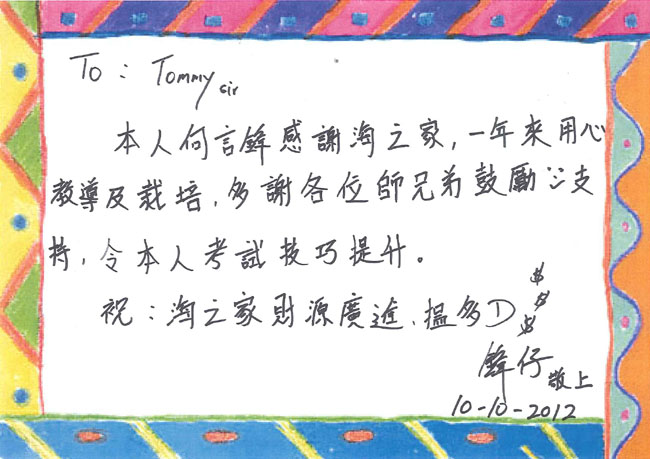 To : Tommy sir
本人何言鋒感謝淘之家，一年來用心
教導及栽培，多謝各位師兄弟鼓勵及支
持，令本人考試技巧提升。
祝：淘之家財源廣進、搵多D $ $ $
鋒仔 敬上
10-10-2012